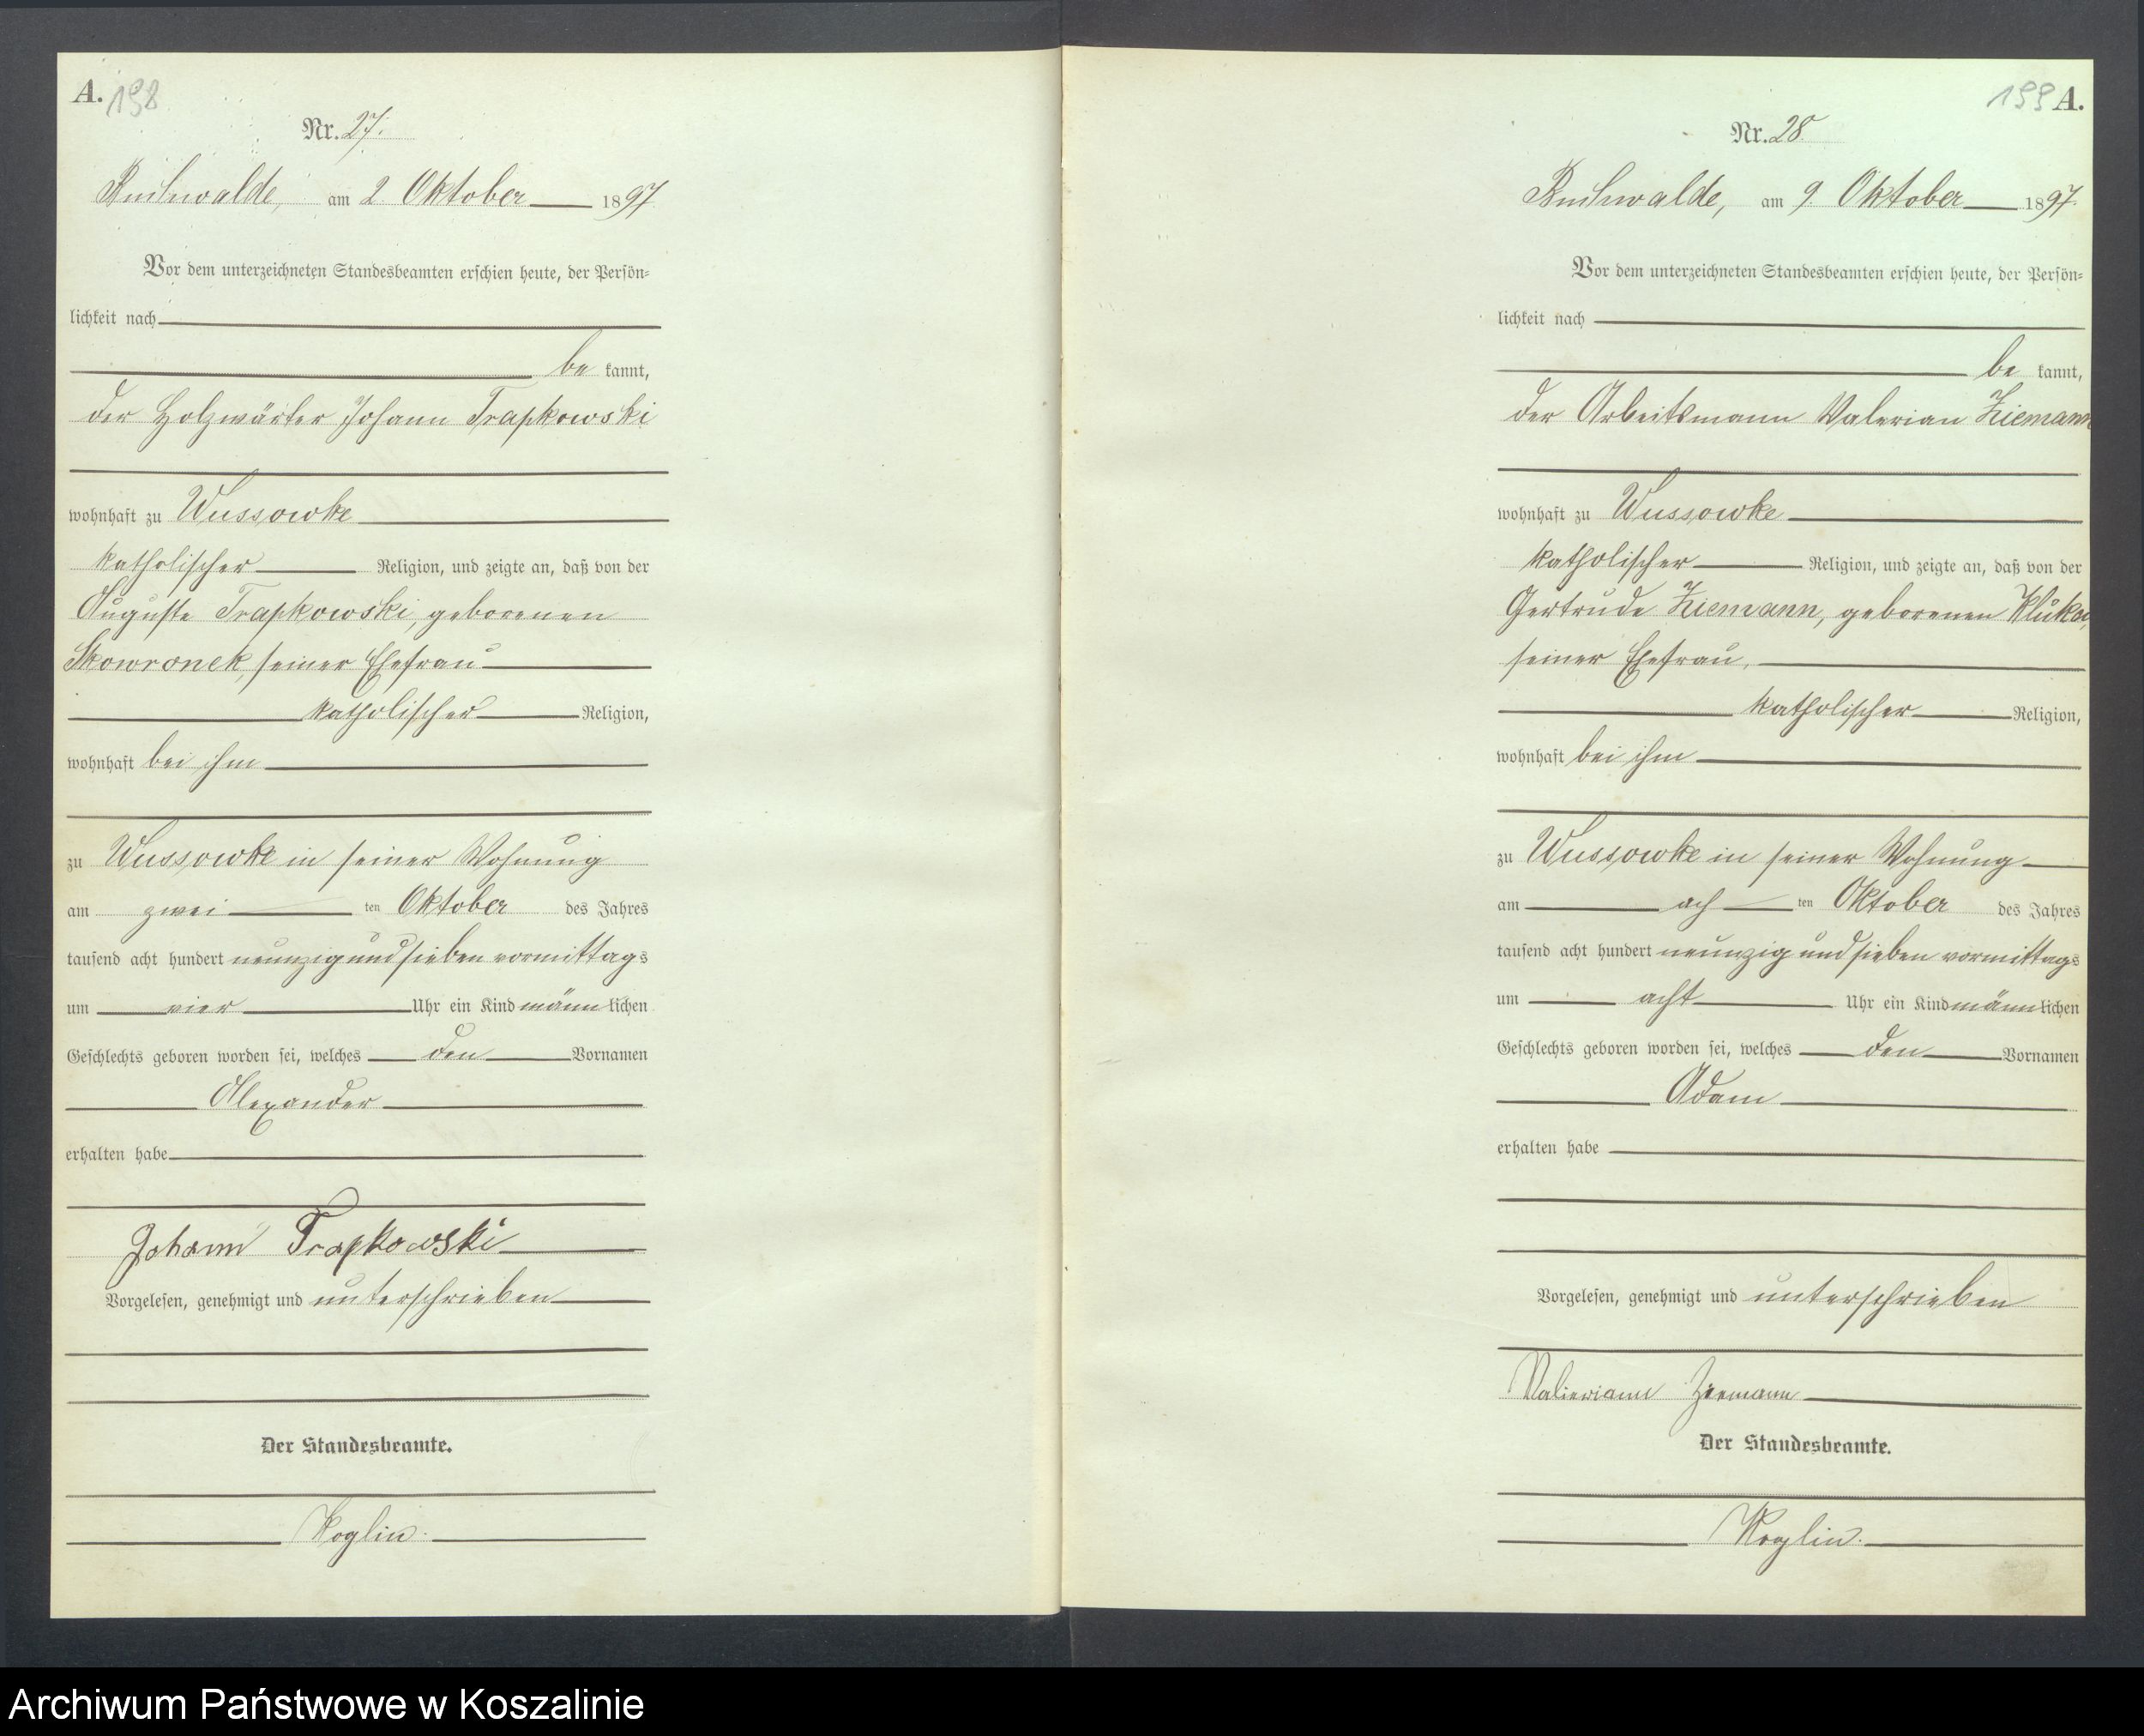 A. 198
Nr. 27.
Buchwalde, am 2. Oktober 1897
Vor dem unterzeichneten Standesbeamten erschien heute, der Persön-
lichkeit nach
be kannt,
der Holzwärter Johann Trapkowski
wohnhaft zu Wussowke
katholischer Religion, und zeigte an, daß von der
Auguste Trapkowski, geborenen
Skowronek, seiner Ehefrau
katholischer Religion,
wohnhaft bei ihm
zu Wussowke in seiner Wohnung
am zwei ten Oktober des Jahres
tausend acht hundert neunzig und sieben vormittags
um vier Uhr ein Kind männlichen
Geschlechts geboren worden sei, welches den Vornamen
Alexander
erhalten habe
Johann Trapkowski
Vorgelesen, genehmigt und unterschrieben
Der Standesbeamte.
Koglin.
199 A.
Nr. 28.
Buchwalde, am 9. Oktober 1897.
Vor dem unterzeichneten Standesbeamten erschien heute, der Persön-
lichkeit nach
be kannt,
der Arbeitsmann Valerian Ziemann
wohnhaft zu Wussowke
katholischer Religion, und zeigte an, daß von der
Gertrude Ziemann, geborenen
seiner Ehefrau,
katholischer Religion,
wohnhaft bei ihm
zu Wussowke in seiner Wohnung
am ach ten Oktober des Jahres
tausend acht hundert neunzig und sieben vormittags
um acht Uhr ein Kind männlichen
Geschlechts geboren worden sei, welches den Vornamen
Adam
erhalten habe
Vorgelesen, genehmigt und unterschrieben
Valieriann Ziemann
Der Standesbeamte.
Koglin.
Archiwum Państwowe w Koszalinie